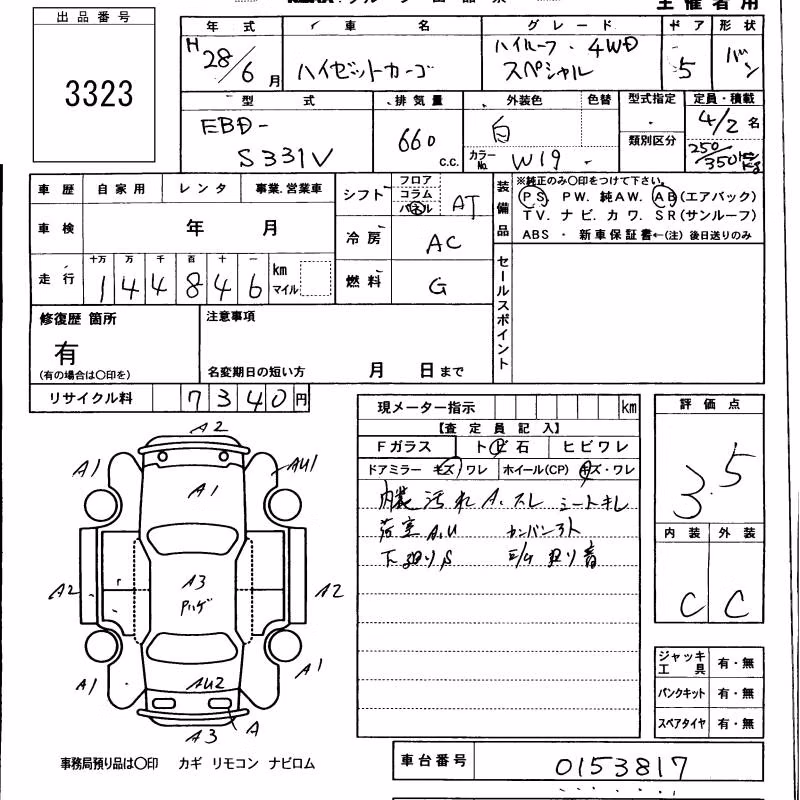 主催者用
出品番号
3323
年式
H 28/6 月
車名
ハイゼットカーゴ
グレード
ハイルーフ・4WD
スペシャル
ドア
5
形状
バン
型式
EBD-
S331V
排気量
660
c.c.
外装色
白
色替
カラーNo.
W19
-
型式指定
類別区分
定員・積載
4/2 名
250/350 kg
車歴
自家用
レンタ
事業.営業車
車検
年 月
走行
十万 万 千 百 十 一
1 4 4 8 4 6
km
マイル
シフト
フロア
コラム
パネル
AT
冷房
AC
燃料
G
装備品
※純正のみ〇印をつけて下さい。
PS. PW. 純AW. AB(エアバック)
TV. ナビ. カワ. SR(サンルーフ)
ABS ・ 新車保証書←(注)後日送りのみ
セールスポイント
修復歴 箇所
有
(有の場合は〇印を)
注意事項
名変期日の短い方 月 日まで
リサイクル料
7340円
現メーター指示
km
【査定員記入】
Fガラス
トビ石
ヒビワレ
ドアミラー キズ/ワレ
ホイール(CP) キズ・ワレ
内装 汚れ A. スレ シートキレ
荷室 A.U カンバン引ト
下廻りS E/G 廻り音
評価点
3.5
内装
外装
C
C
ジャッキ
工具
有・無
パンクキット
有・無
スペアタイヤ
有・無
A2
A1
AU1
A1
A2
A3
Pハゲ
A2
A1
A1
AU2
A
A3
事務局預り品は〇印 カギ リモコン ナビロム
車台番号
0153817